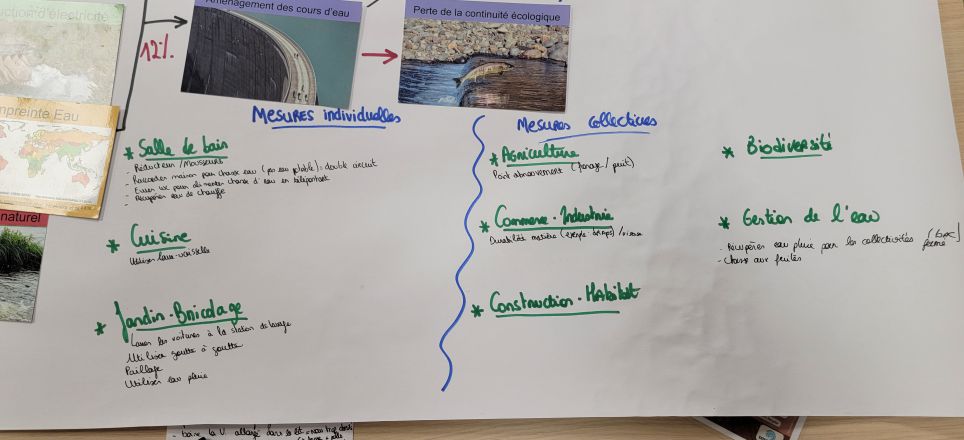 uction d'électricité
Aménagement des cours d'eau
Perte de la continuité écologique
12%
mpreinte Eau
naturel
Mesures individuelles
* Salle de bain
- Réducteur / Mousseurs
- Raccorder maison pour chasse eau (pas eau potable) : double circuit
- chasse d'eau en
- Récupérer eau de chauffe
* Cuisine
Utiliser lave-vaisselle
* Jardin - Bricolage
Laver les voitures à la station de lavage
Utiliser goutte à goutte
Paillage
Utiliser eau pluie
Mesures collectives
* Agriculture
Point abreuvement (forage / puit)
* Commerce - Industrie
Durabilité matière (exemple : ) /
* Construction - Habitat
* Biodiversité
* Gestion de l'eau
- Récupérer eau pluie pour les collectivités (bac fermé)
- Chasse aux fuites